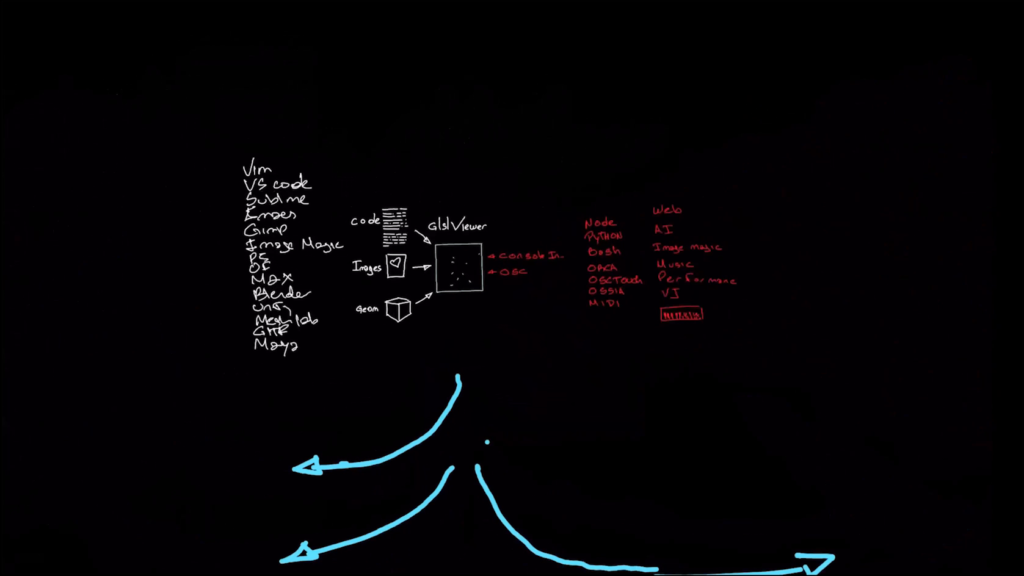 Vim
VS code
Sublime
Emacs
Gimp
Image Magic
PS
MAX
Blender
Unity
Mesh lab
Maya
code
Images
Geom
GlslViewer
Console In
OSC
Node
PYTHON
Bash
ORCA
OSCTouch
OSSIA
MIDI
Web
AI
Image magic
Music
Performane
VJ